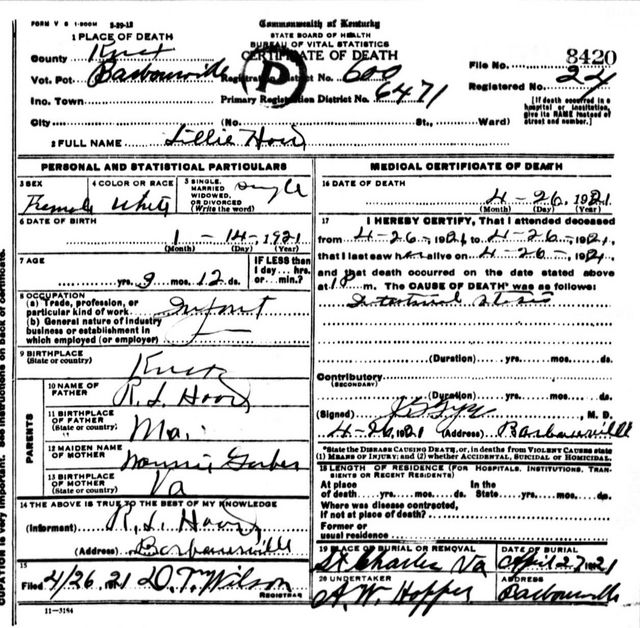 FORM V S 1-500M 3-29-12
Commonwealth of Kentucky
STATE BOARD OF HEALTH
BUREAU OF VITAL STATISTICS
CERTIFICATE OF DEATH
1 PLACE OF DEATH
County Knox
Vot. Pct Barbourville Registration District No. 600
File No. 8420
Inc. Town Primary Registration District No. 6471
Registered No. 24
City (No. St., Ward)
[If death occurred in a hospital or institution, give its NAME instead of street and number.]
P
2 FULL NAME Lillie Hoard
PERSONAL AND STATISTICAL PARTICULARS
3 SEX
Female
4 COLOR OR RACE
White
5 SINGLE, MARRIED WIDOWED, OR DIVORCED (Write the word)
Single
6 DATE OF BIRTH
1 - 14, 1921
(Month) (Day) (Year)
7 AGE
yrs. 3 mos. 12 ds.
IF LESS than 1 day... hrs. or... min.?
8 OCCUPATION
(a) Trade, profession, or particular kind of work Infant
(b) General nature of industry
business or establishment in
which employed (or employer)
9 BIRTHPLACE
(State or country) Knox
PARENTS
10 NAME OF FATHER R. L.
11 BIRTHPLACE OF FATHER
(State or country)
12 MAIDEN NAME OF MOTHER
13 BIRTHPLACE OF MOTHER
(State or country) Va
14 THE ABOVE IS TRUE TO THE BEST OF MY KNOWLEDGE
(Informant) R. L.
(Address) Barbourville
15
Filed 4/26, 21 D. T. Wilson
REGISTRAR
11-3184
MEDICAL CERTIFICATE OF DEATH
16 DATE OF DEATH
4-26, 1921
(Month) (Day) (Year)
17 I HEREBY CERTIFY, That I attended deceased
from 4-26-, 1921, to 4-26-, 1921,
that I last saw her alive on 4-26-, 1921
and that death occurred on the date stated above
at m. The CAUSE OF DEATH* was as follows:
Intestinal Stasis
(Duration) yrs. mos. ds.
Contributory
(SECONDARY)
(Duration) yrs. mos. ds.
(Signed) , M. D.
4-26, 1921 (Address) Barbourville
*State the DISEASE CAUSING DEATH, or, in deaths from VIOLENT CAUSES state
(1) MEANS OF INJURY; and (2) whether ACCIDENTAL, SUICIDAL or HOMICIDAL.
18 LENGTH OF RESIDENCE (FOR HOSPITALS, INSTITUTIONS, TRANSIENTS OR RECENT RESIDENTS)
At place of death yrs. mos. ds. In the State yrs. mos. ds.
Where was disease contracted,
if not at place of death?
Former or
usual residence
19 PLACE OF BURIAL OR REMOVAL
St Charles Va
DATE OF BURIAL
April 27, 1921
20 UNDERTAKER
A. W. Hopper
ADDRESS
Barbourville
CUPATION is very important. See instructions on back of certificate.